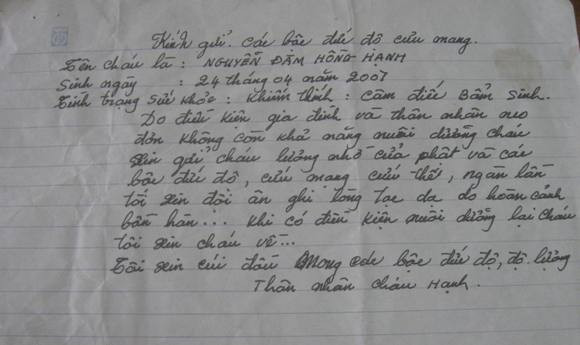 Kính gửi. Các bậc đức độ cưu mang.
Tên cháu là : NGUYỄN ĐẶM HỒNG HẠNH
Sinh ngày : 24 tháng 04 năm 2007
Tình trạng sức khỏe : Khiếm thính : câm điếc Bẩm Sinh.
Do điều kiện gia đình và thân nhân neo
đơn không còn khả năng nuôi dưỡng cháu
xin gửi cháu lương nhờ cửa phật và các
bậc đức độ, cứu mạng cứu thế, ngàn lần
tôi xin đội ân ghi lòng tạc dạ do hoàn cảnh
bần hàn... Khi có điều kiện nuôi dưỡng lại cháu
tôi xin cháu về...
Tôi xin cúi đầu Mong các bậc đức độ, độ lượng
Thân nhân cháu Hạnh.